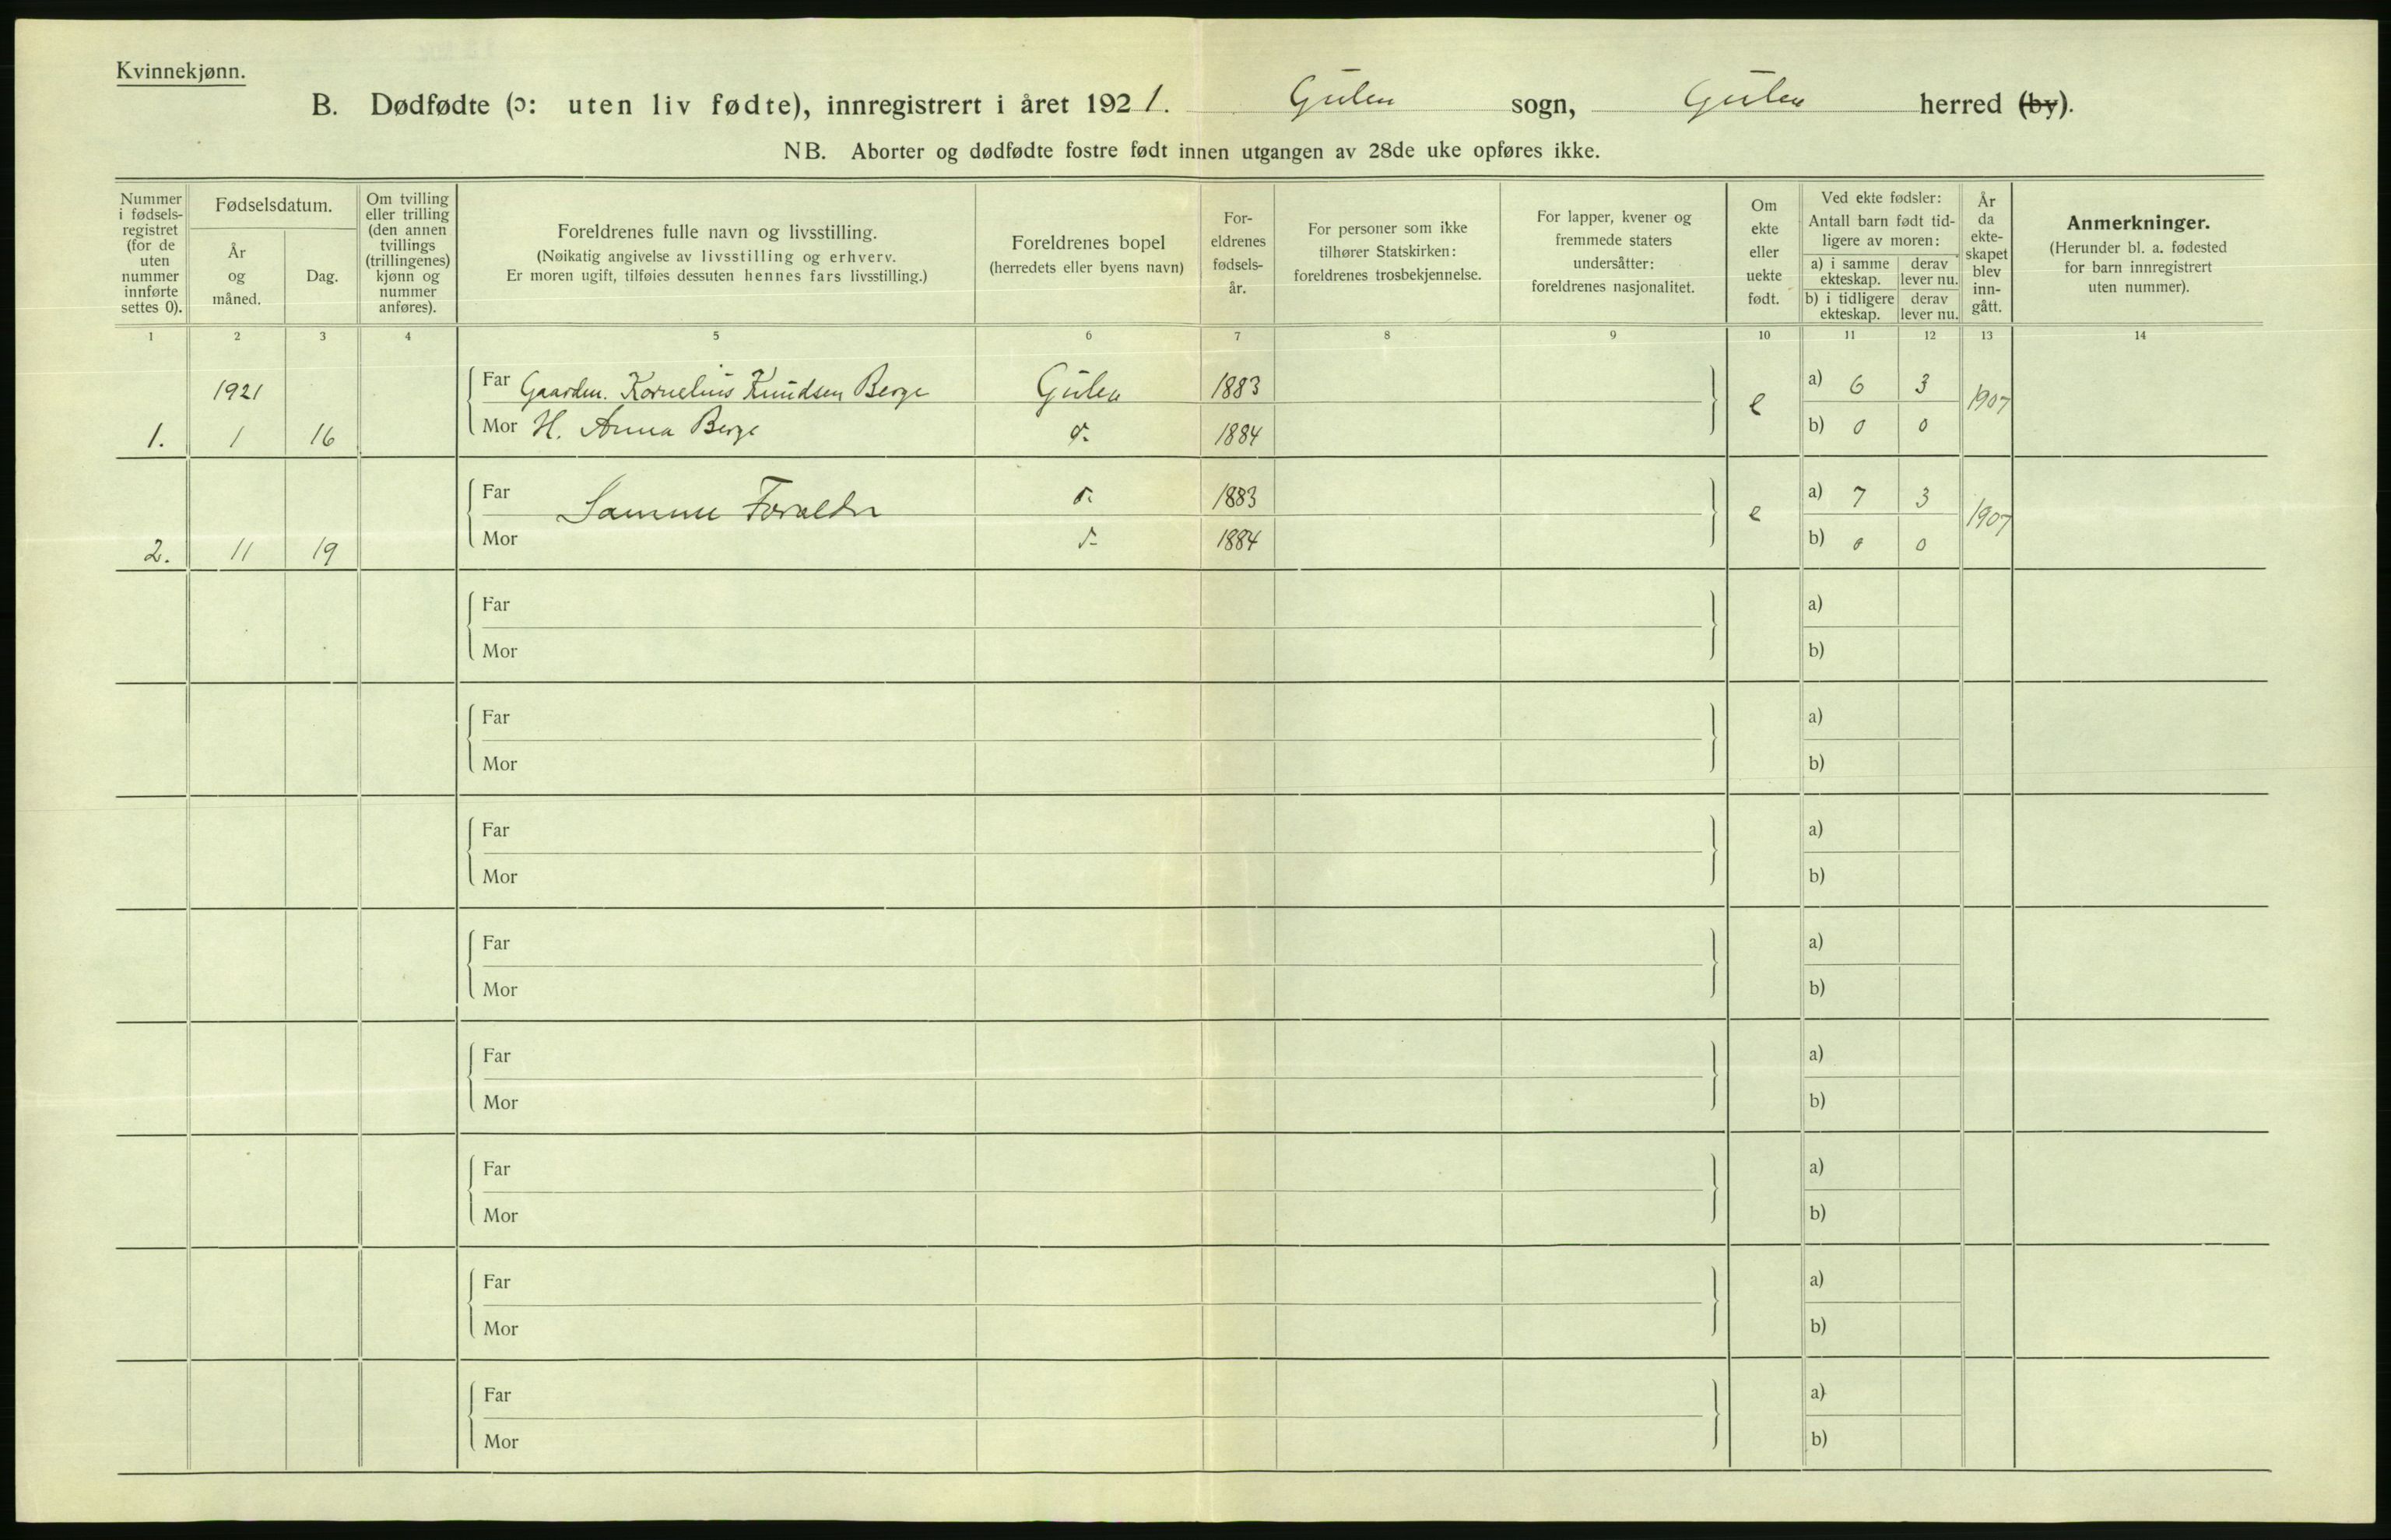 Kvinnekjønn.
B. Dødfødte (ɔ: uten liv fødte), innregistrert i året 1921. Gulen sogn, Gulen herred (by).
NB. Aborter og dødfødte fostre født innen utgangen av 28de uke opføres ikke.
Nummer
i fødsels-
registret
(for de
uten
nummer
innførte
settes 0).
Fødselsdatum.
År
og
måned.
Dag.
Om tvilling
eller trilling
(den annen
tvillings
(trillingenes)
kjønn og
nummer
anføres).
Foreldrenes fulle navn og livsstilling.
(Nøikatig angivelse av livsstilling og erhverv.
Er moren ugift, tilføies dessuten hennes fars livsstilling.)
Foreldrenes bopel
(herredets eller byens navn)
For-
eldrenes
fødsels-
år.
For personer som ikke
tilhører Statskirken:
foreldrenes trosbekjennelse.
For lapper, kvener og
fremmede staters
undersåtter:
foreldrenes nasjonalitet.
Om
ekte
eller
uekte
født.
Ved ekte fødsler:
Antall barn født tid-
ligere av moren:
a) i samme
ekteskap.
derav
lever nu.
b) i tidligere
ekteskap.
derav
lever nu.
År
da
ekte-
skapet
blev
inn-
gått.
Anmerkninger.
(Herunder bl. a. fødested
for barn innregistrert
uten nummer).
1 2 3 4 5 6 7 8 9 10 11 12 13 14
1921 Far Gaardm. Kornelius Knudsen Berge Gulen 1883 e a) 6 3 1907
1. 1 16 Mor H. Anna Berge d- 1884 b) 0 0
Far Samme Foraeldr d- 1883 e a) 7 3 1907
2. 11 19 Mor d- 1884 b) 0 0
Far a)
Mor b)
Far a)
Mor b)
Far a)
Mor b)
Far a)
Mor b)
Far a)
Mor b)
Far a)
Mor b)
Far a)
Mor b)
Far a)
Mor b)